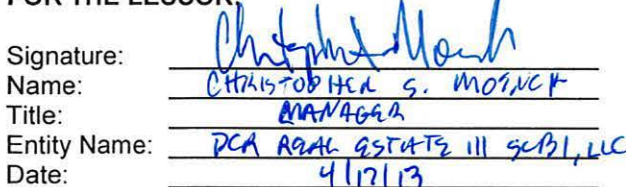 FOR THE LESSOR:
Signature:
Name: CHRISTOPHER S. MOENCH
Title: MANAGER
Entity Name: DCR REAL ESTATE III SCB1, LLC
Date: 4/17/13